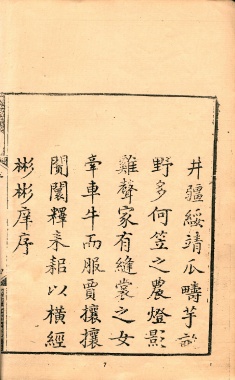 井疆綏靖瓜疇芋區
野多何笠之農燈影
雞聲家有縫裳之女
牽車牛而服賈攘攘
閴闤釋耒耜以橫經
彬彬庠序